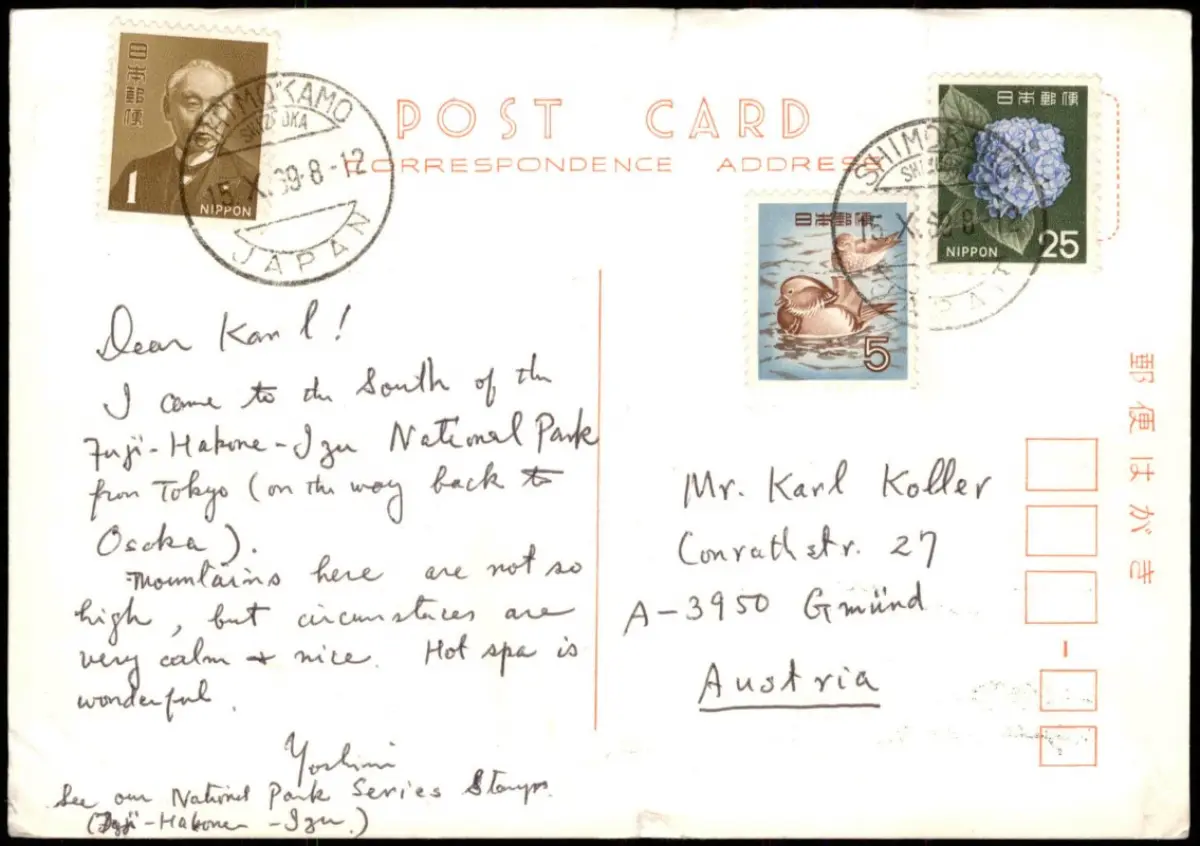 日本郵便
1
NIPPON
SHIMOKAMO
SHIZUOKA
15.X.69.8-12
JAPAN
POST CARD
CORRESPONDENCE ADDRESS
日本郵便
5
日本郵便
NIPPON 25
SHIMOKAMO
15.X.69 8-12
JAPAN
郵便はがき
Dear Karl!
I came to the South of the
Fuji-Hakone-Izu National Park
from Tokyo (on the way back to
Osaka).
Mountains here are not so
high, but circumstances are
very calm & nice. Hot spa is
wonderful.
Yoshimi
See our National Park Series Stamps.
(Fuji-Hakone-Izu.)
Mr. Karl Koller
Conrathstr. 27
A-3950 Gmünd
Austria